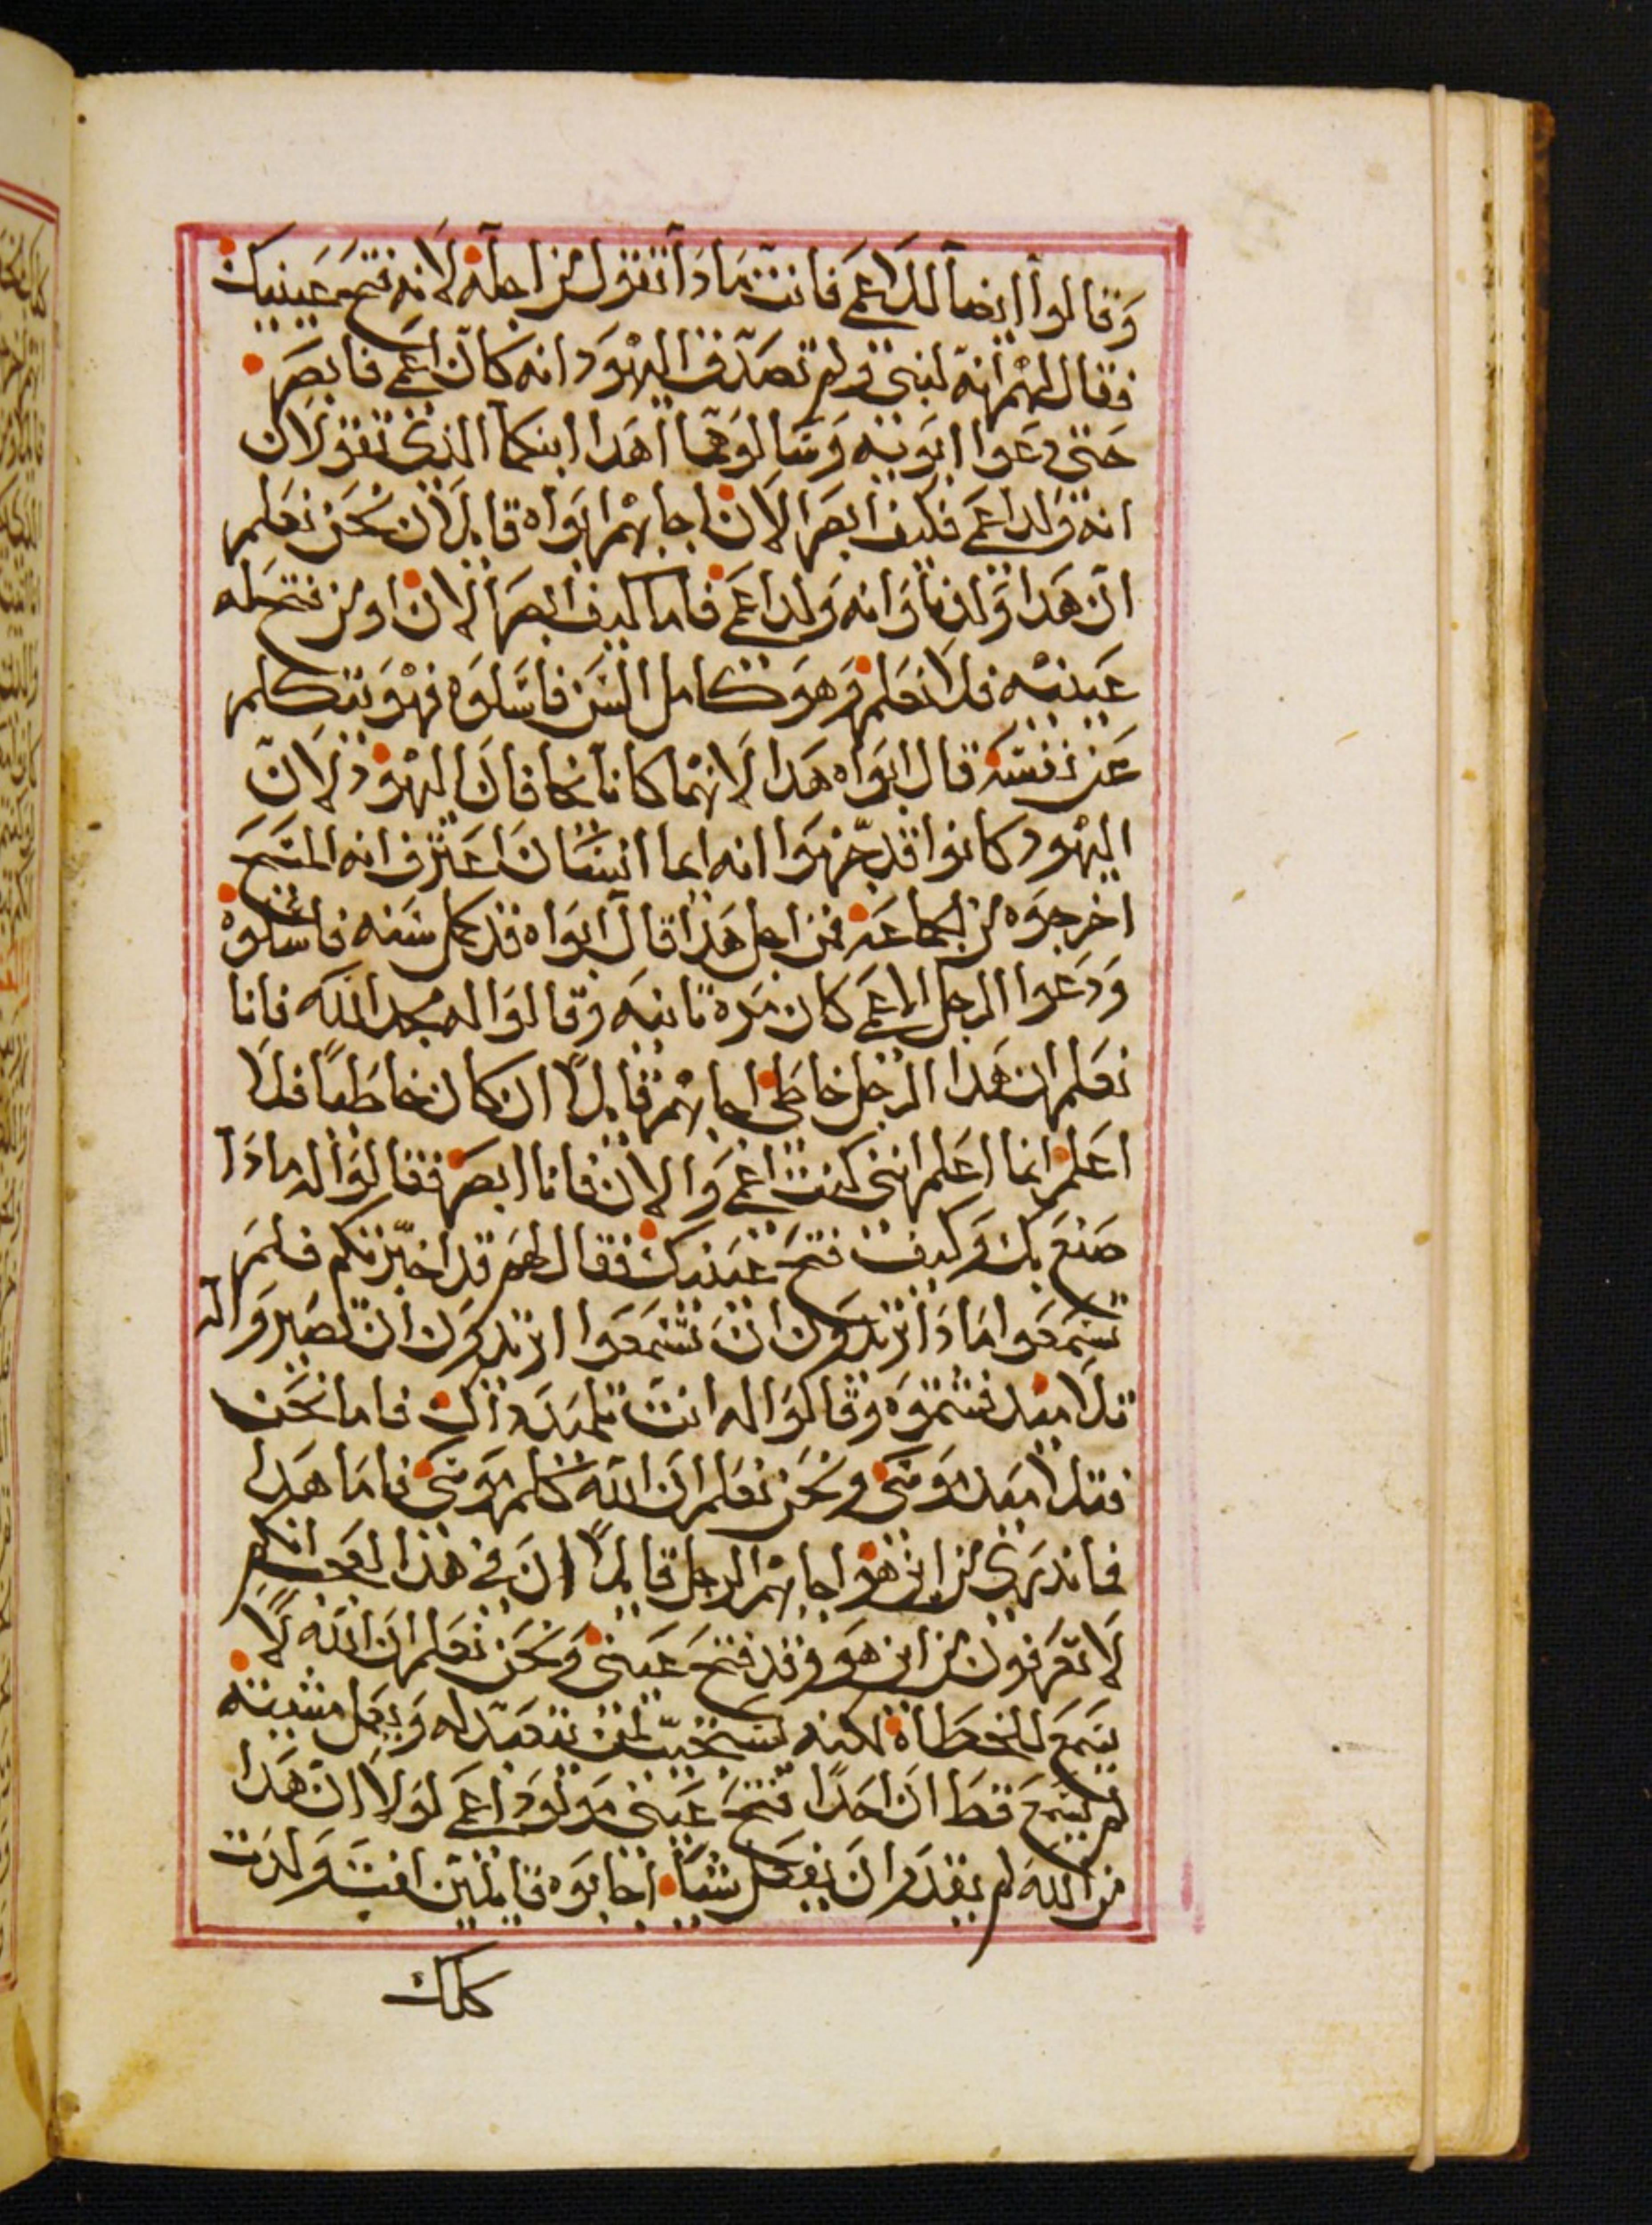 وقالوا ايضا للاعمى فانت ماذا تقول من اجله لانه فتح عينيك
فقال لهم انه لنبي ولم تصدق اليهود انه كان اعمى فابصر
حتى دعوا ابويه وسالوهما اهدا ابنكما الذي تقولان
انه ولد اعمى فكيف ابصر الان اجابهم ابواه قايلان نحن نعلم
ان هدا ولدنا وانه ولد اعمى فاما كيف ابصر الان او من فتح له
عينيه فلا نعلم وهو كامل السن فاسلوه فهو يتكلم
عن نفسه قال ابواه هدا لانهما كانا يخافان اليهود لان
اليهود كانوا قد جزموا انه ايما انسان اعترف انه المسيح
اخرجوه من الجماعه فمن اجل هذا قال ابواه قد كمل سنه فاسلوه
ودعوا الرجل الاعمى كان مره تانيه وقالوا له مجد الله فانا
نعلم ان هدا الرجل خاطي اجابهم قايلا ان كان خاطيا فلا
اعلم انما اعلم انني كنت اعمى والان فانا ابصر فقالوا له مادا
صنع بك وكيف فتح عينيك فقال لهم قد اخبرتكم فلم
تسمعوا مادا تريدون ان تسمعوا اتريدون ان تصيروا له
تلاميد فشتموه وقالوا له انت تلميد داك فاما نحن
فتلاميد موسى ونحن نعلم ان الله كلم موسى فاما هدا
فما ندري من اين هو اجابهم الرجل قايلا ان في هذا لعجب انكم
لا تعرفون من اين هو وقد فتح عيني ونحن نعلم ان الله لا
يسمع للخطاة لكنه يستجيب لمن يتعبد له ويعمل مشيته
لم يسمع قط ان احدا فتح عيني مولود اعمى لولا ان هدا
من الله لم يقدر ان يفعل شيا اجابوه قايلين انت ولدت
كلك